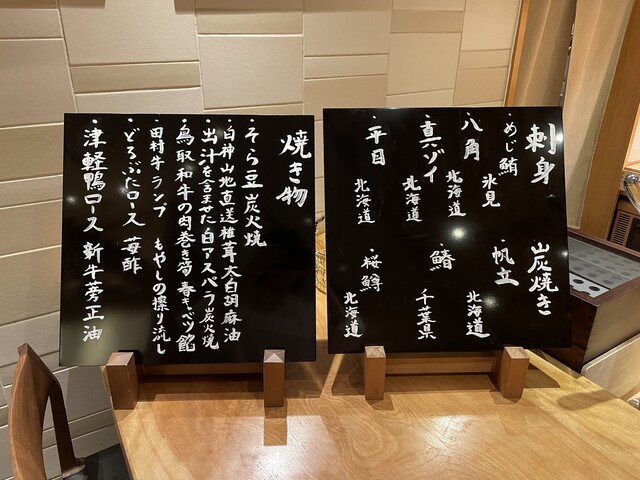 刺身
・めじ鮪 氷見
・八角 北海道
・真ゾイ 北海道
・平目 北海道
炭焼き
・帆立 北海道
・鰆 千葉県
・桜鱒 北海道
焼き物
・そら豆 炭火焼
・白神山地直送椎茸 太白胡麻油
・出汁を含ませた白アスパラ 炭火焼
・鳥取和牛の肉巻き筍 春キャベツ餡
・田村牛ランプ もやしの擦り流し
・どろぶたロース 苺酢
・津軽鴨ロース 新牛蒡正油